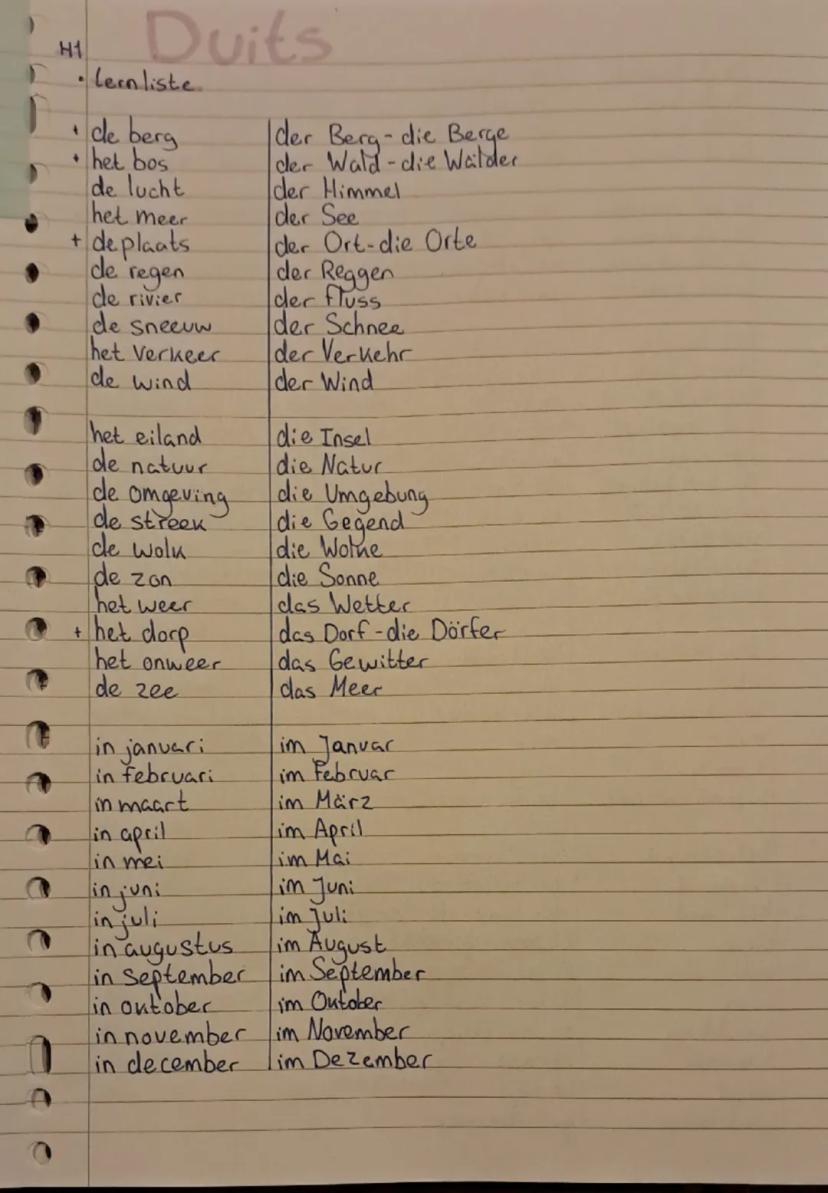 Duits
H1
• Lernliste
• de berg der Berg - die Berge
• het bos der Wald - die Wälder
de lucht der Himmel
het meer der See
+ de plaats der Ort - die Orte
de regen der Reggen
de rivier der Fluss
de sneeuw der Schnee
het verkeer der Verkehr
de wind der Wind
het eiland die Insel
de natuur die Natur
de omgeving die Umgebung
de streek die Gegend
de wolk die Wolke
de zon die Sonne
het weer das Wetter
+ het dorp das Dorf - die Dörfer
het onweer das Gewitter
de zee das Meer
in januari im Januar
in februari im Februar
in maart im März
in april im April
in mei im Mai
in juni im Juni
in juli im Juli
in augustus im August
in september im September
in oktober im Oktober
in november im November
in december im Dezember